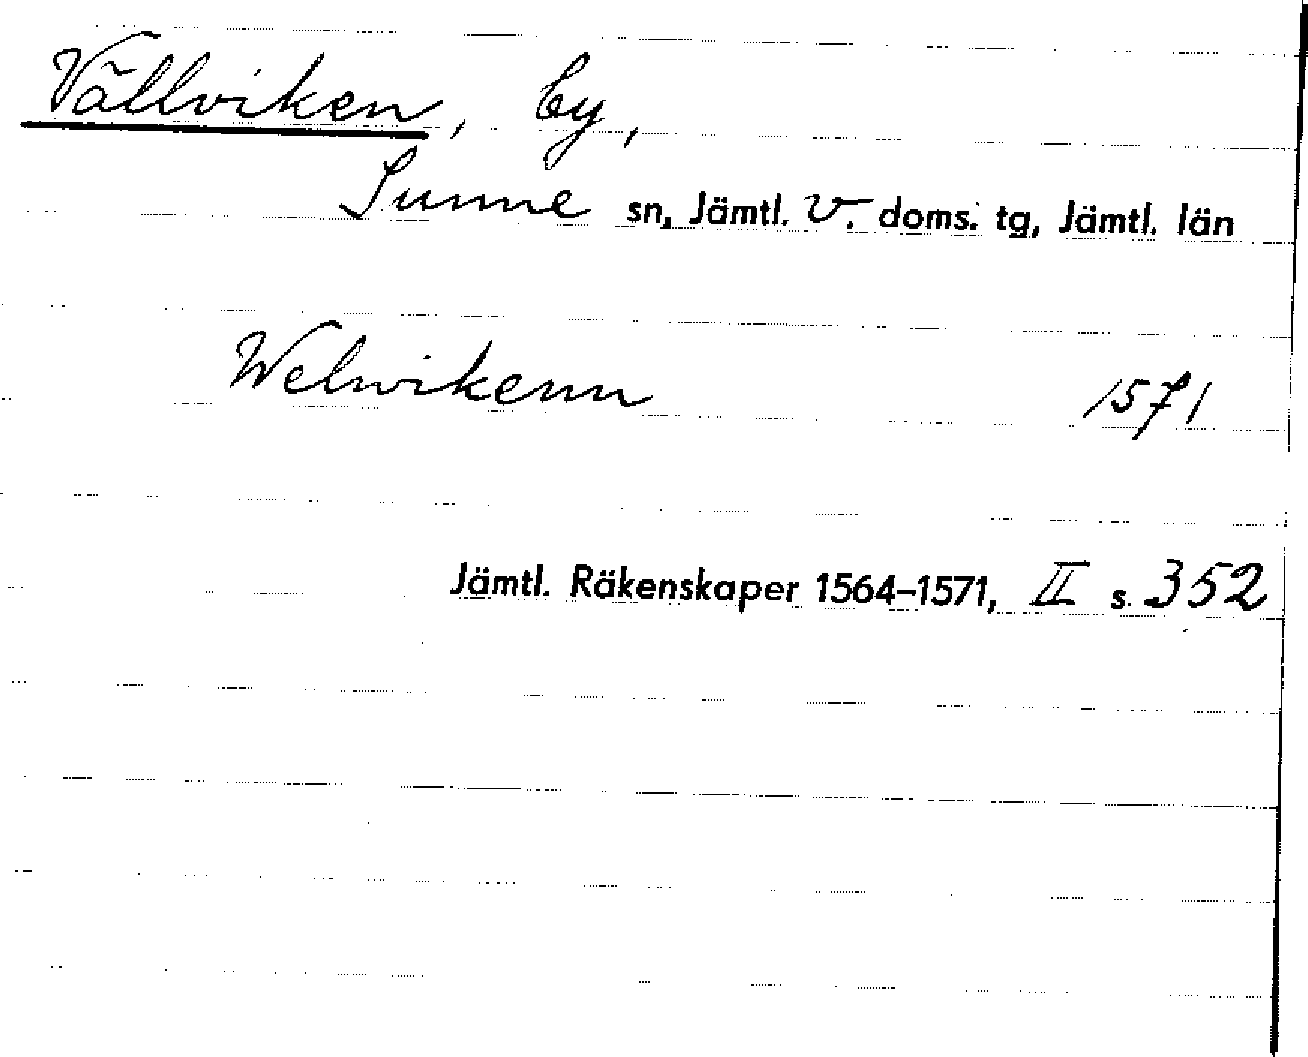 Vällviken, by,
Sunne sn, Jämtl. v. doms. tg, Jämtl. län
Welwikenn 1571
Jämtl. Räkenskaper 1564–1571, II s. 352